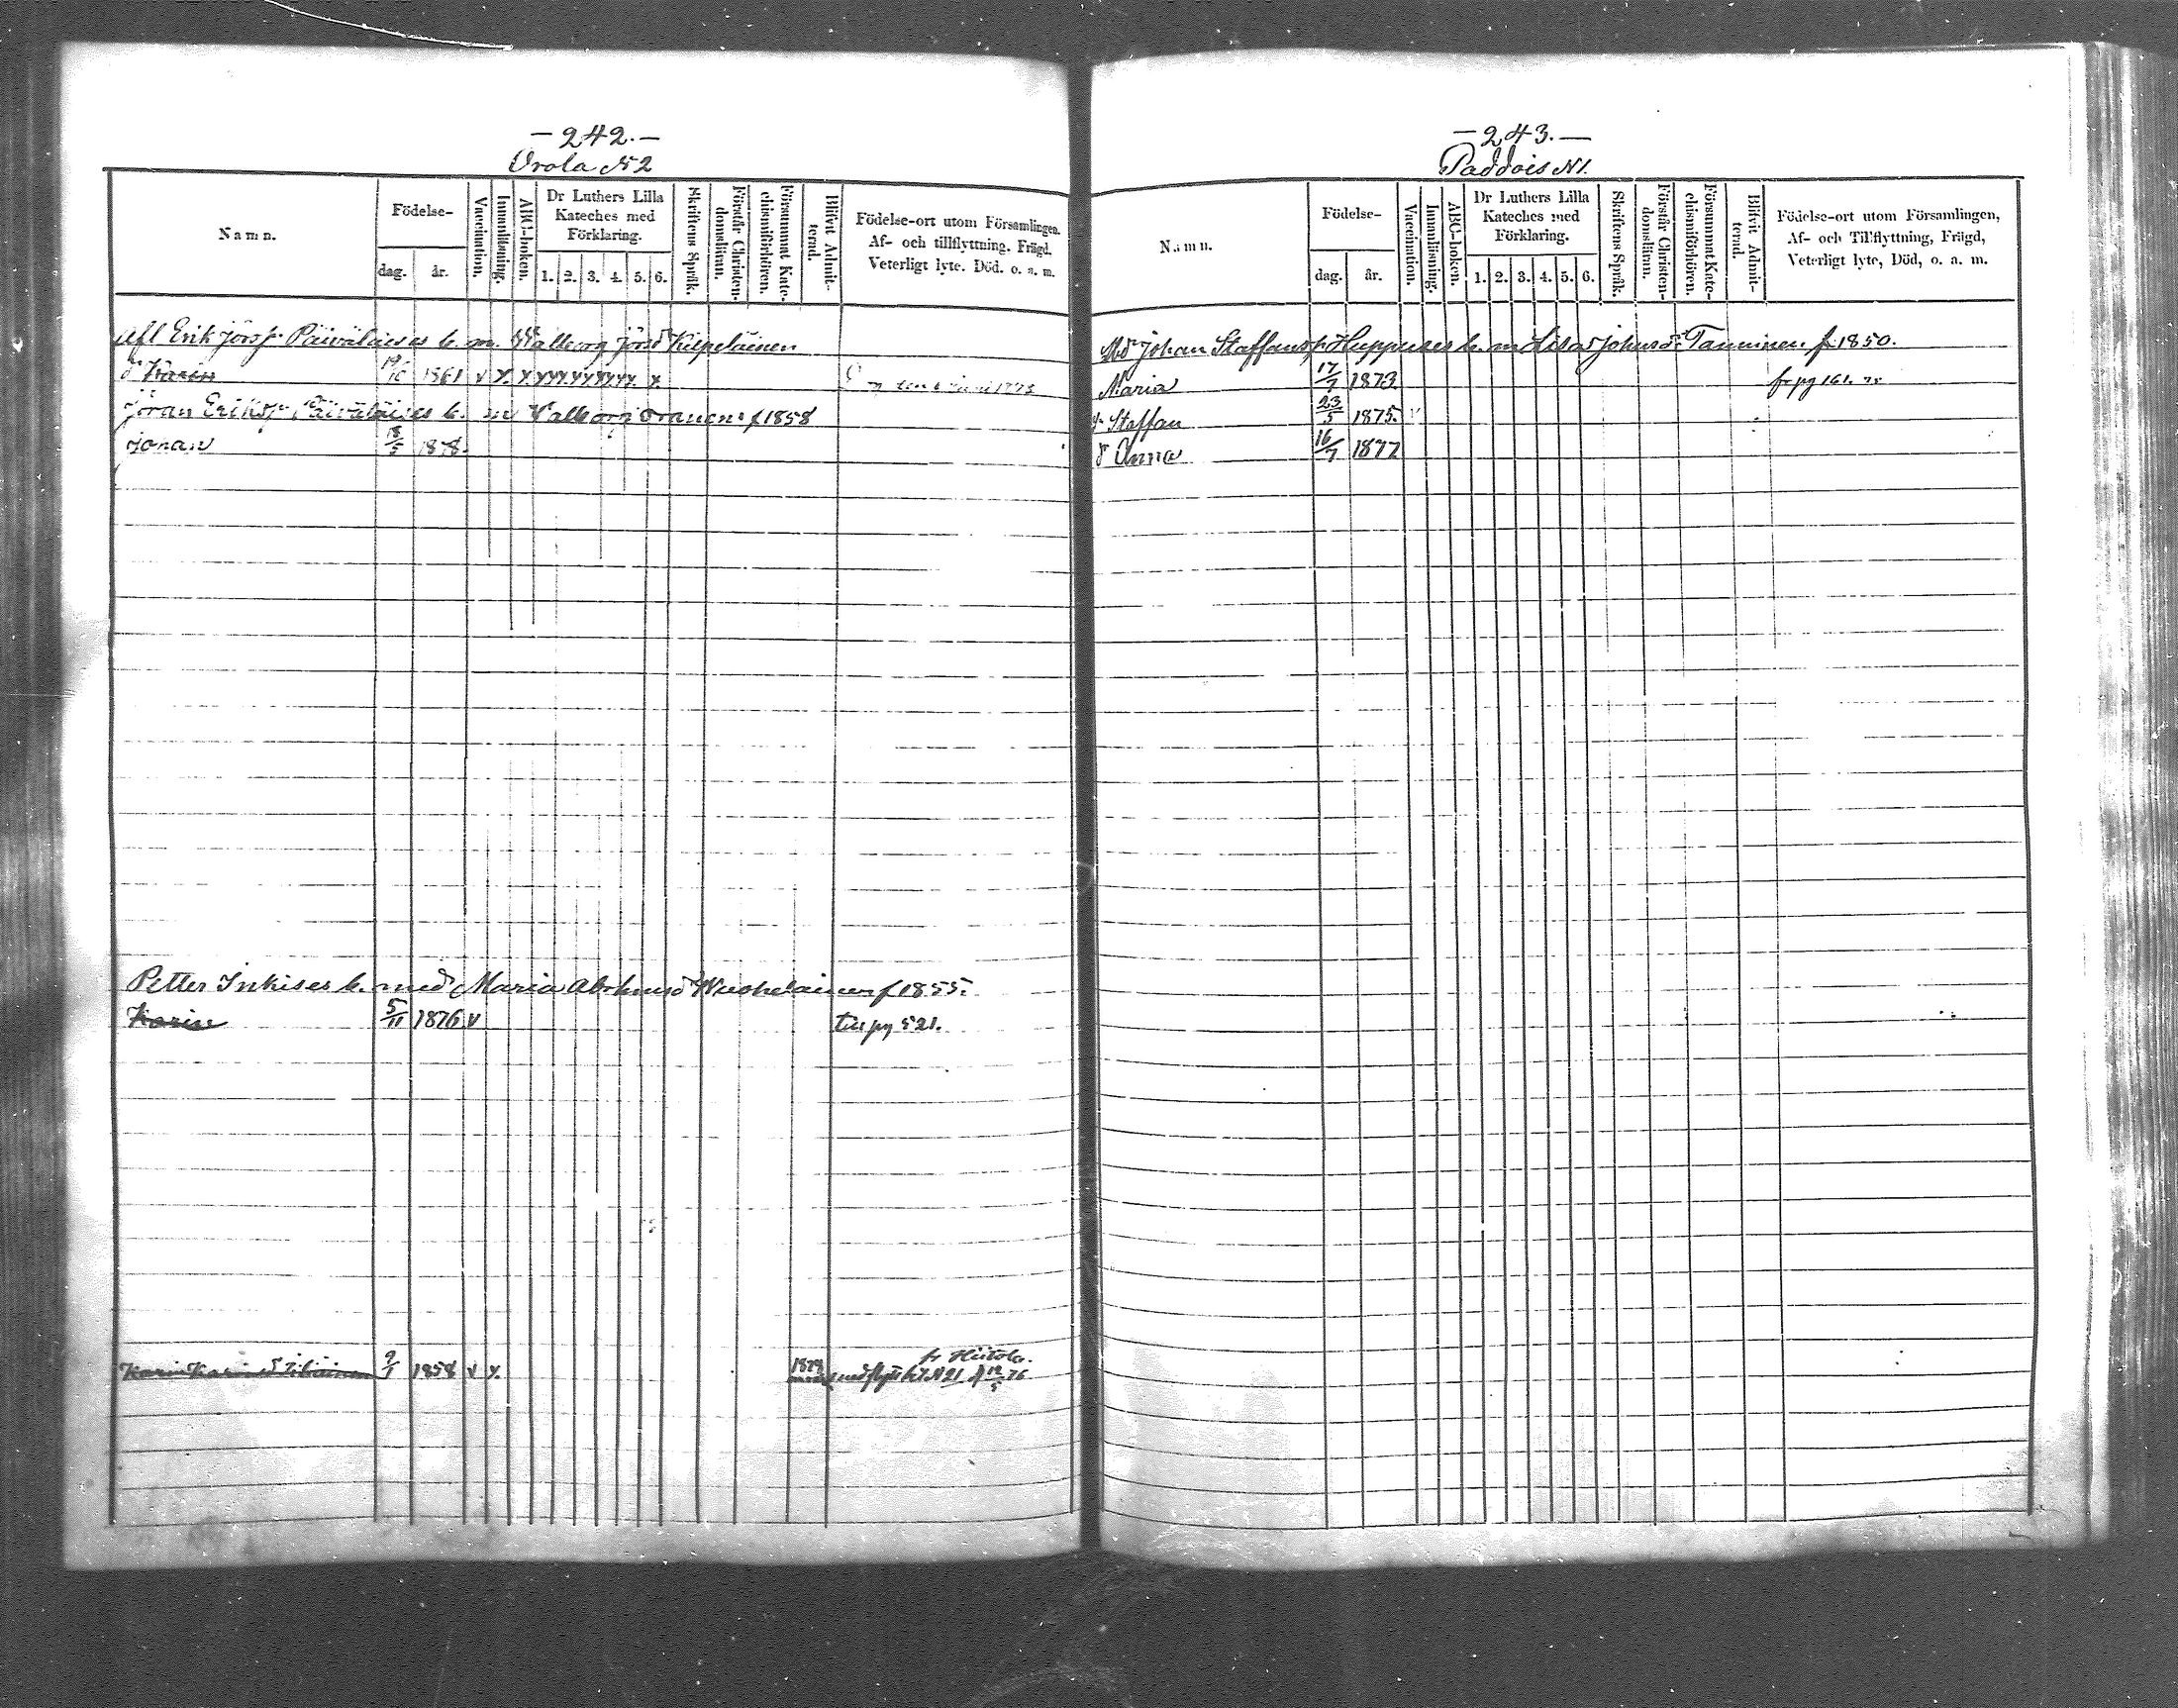 -242.-
Orola N2
Namn.
Födelse-
dag.
år.
Vaccination.
Innanläsning.
ABC-boken.
Dr Luthers Lilla
Kateches med
Förklaring.
1. 2. 3. 4. 5. 6.
Skriftens Språk.
Förstår Christen-
domsläran.
Försummat Kate-
chismiförhören.
Blifvit Admit-
terad.
Födelse-ort utom Församlingen,
Af- och tillflyttning, Frägd,
Veterligt lyte. Död. o. a. m.
Afl Erik Jörsf Päiväläises b. m. Walborg Jörsd Kilpeläinen
d Karin 19/10 1861 v x. x
Jöran Eriksf Päiväläises b. m Valborg Oranen f 1858
Johan 18/5 1878.
Petter Inkises b. med Maria Abrhmsd f 1855.
Karin 5/11 1876 v till pg 521.
fr Hiitola.
Karin 9/1 1858 v x. 1874 N21 12/5 76
-243.-
Paddois N1.
Namn.
Födelse-
dag.
år.
Vaccination.
Innanläsning.
ABC-boken.
Dr Luthers Lilla
Kateches med
Förklaring.
1. 2. 3. 4. 5. 6.
Skriftens Språk.
Förstår Christen-
domsläran.
Försummat Kate-
chismiförhören.
Blifvit Admit-
terad.
Födelse-ort utom Församlingen,
Af- och Tillflyttning, Frägd,
Veterligt lyte, Död, o. a. m.
Johan Staffansf Huppuses b. m Lisa Johnsd Tanninen f 1850.
Maria 17/7 1873 fr pg 161.
Staffan 23/5 1875. v
d Anna 16/7 1877